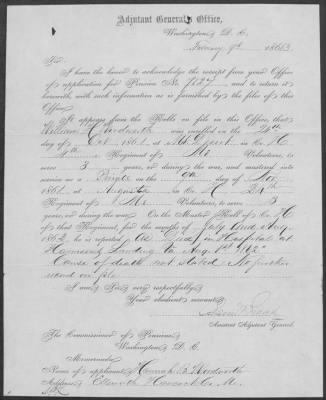 Adjutant General's Office,
Washington, D. C.
9th, 1863
Sir:
I have the honor to acknowledge the receipt from your Office
of application for Pension No. and to return it
herewith, with such information as is furnished by the files of this
Office.
It appears from the Rolls on file in this Office, that
William H. was enrolled on the
day of Oct. 1861, at in Co. H
Regiment of Me. Volunteers, to
serve 3 years, or during the war, and mustered into
service as a Private on the 9th day of Nov.
1861, at Augusta in Co. H
Regiment of Me. Volunteers, to serve 3
years, or during the war. On the Muster Roll of Co. H
of that Regiment, for the months of July and Aug.
1862, he is reported in Hospital at
Harrisons Landing Va. Aug. 1862
Cause of death not stated. No further
record on file
I am, Sir, very respectfully,
Your obedient servant,
Assistant Adjutant General.
The Commissioner of Pensions,
Washington, D. C.
Memoranda:
Name of applicant, Hannah
Address, Ellsworth Hancock Co. M.